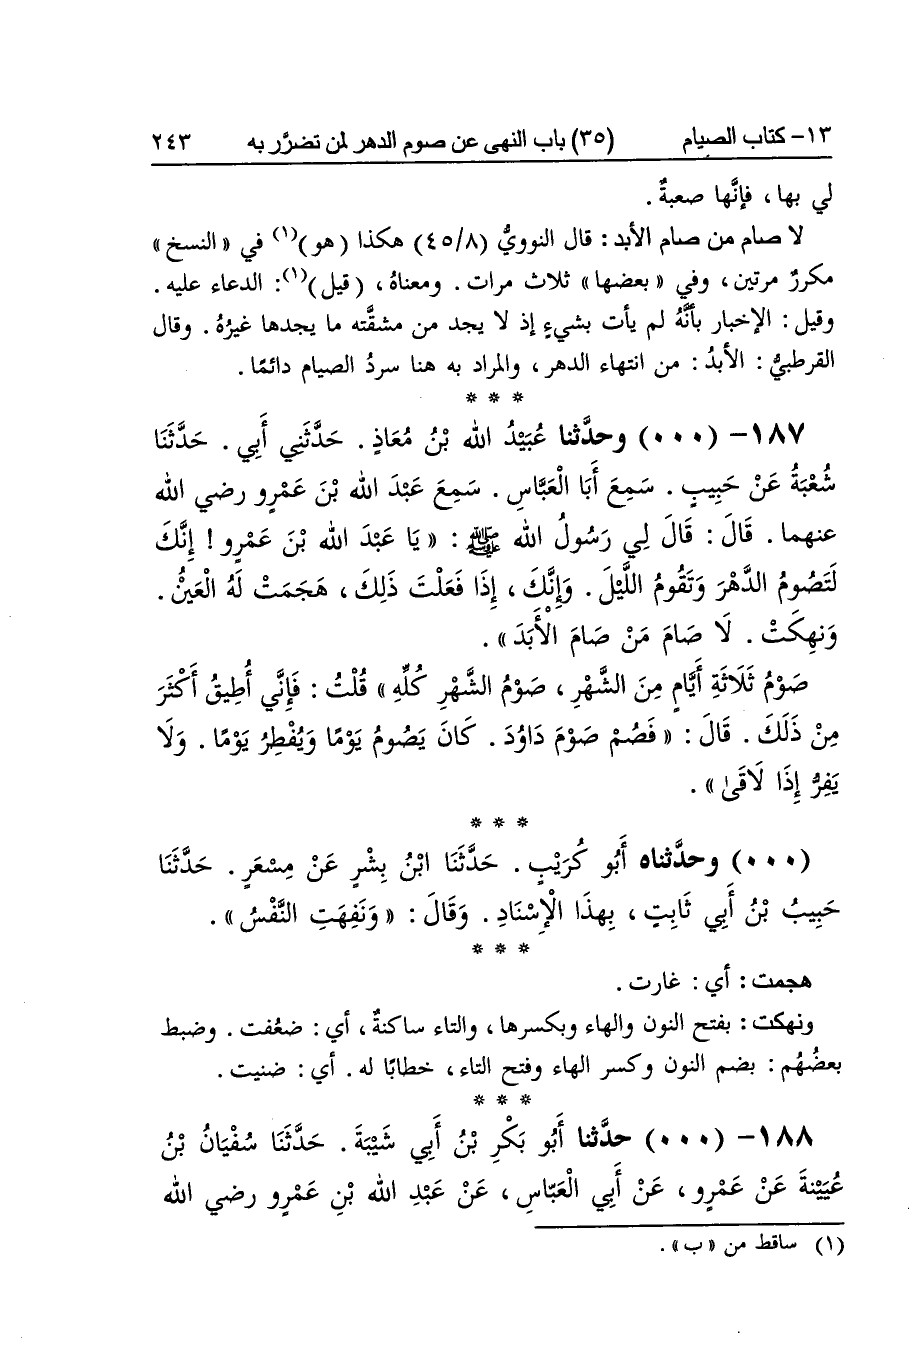 ١٣- كتاب الصيام (٣٥) باب النهى عن صوم الدهر لمن تضرَّر به ٢٤٣
لي بها ، فإنَّها صعبةٌ .
لا صام من صام الأبد : قال النوويُّ (٤٥/٨) هكذا (هو)(١) في « النسخ »
مكررٌ مرتين ، وفي « بعضها » ثلاث مرات . ومعناهُ ، (قيل)(١): الدعاء عليه .
وقيل : الإخبار بأنَّهُ لم يأت بشيءٍ إذ لا يجد من مشقَّته ما يجدها غيرُهُ . وقال
القرطبيُّ : الأبدُ : من انتهاء الدهر ، والمراد به هنا سردُ الصيام دائمًا .
* * *
١٨٧- (٠٠٠) وحدَّثنا عُبَيْدُ الله بْنُ مُعَاذٍ . حَدَّثَنِي أَبِي . حَدَّثَنَا
شُعْبَةُ عَنْ حَبِيبٍ . سَمِعَ أَبَا الْعَبَّاسِ . سَمِعَ عَبْدَ الله بْنَ عَمْرٍو رضي الله
عنهما . قَالَ : قَالَ لِي رَسُولُ الله ﷺ : « يَا عَبْدَ الله بْنَ عَمْرٍو ! إِنَّكَ
لَتَصُومُ الدَّهْرَ وَتَقُومُ اللَّيْلَ . وَإِنَّكَ ، إِذَا فَعَلْتَ ذَلِكَ ، هَجَمَتْ لَهُ الْعَيْنُ .
وَنهِكَتْ . لَا صَامَ مَنْ صَامَ الْأَبَدَ » .
صَوْمُ ثَلَاثَةِ أَيَّامٍ مِنَ الشَّهْرِ ، صَوْمُ الشَّهْرِ كُلِّهِ » قُلْتُ : فَإِنَّي أُطِيقُ أَكْثَرَ
مِنْ ذَلَكَ . قَالَ : « فَصُمْ صَوْمَ دَاوُدَ . كَانَ يَصُومُ يَوْمًا وَيُفْطِرُ يَوْمًا . وَلَا
يَفِرُّ إِذَا لَاقَىٰ » .
* * *
(٠٠٠) وحدَّثناه أَبُو كُرَيْبٍ . حَدَّثَنَا ابْنُ بِشْرٍ عَنْ مِسْعَرٍ . حَدَّثَنَا
حَبِيبُ بْنُ أَبِي ثَابِتٍ ، بِهذَا الْإِسْنَادِ . وَقَالَ : « وَنَفِهَتِ النَّفْسُ » .
* * *
هجمت : أي : غارت .
ونهكت : بفتح النون والهاء وبكسرها ، والتاء ساكنةٌ ، أي : ضعُفت . وضبط
بعضُهُم : بضم النون وكسر الهاء وفتح التاء ، خطابًا له . أي : ضنيت .
* * *
١٨٨- (٠٠٠) حدَّثنا أَبُو بَكْرِ بْنُ أَبِي شَيْبَةَ . حَدَّثَنَا سُفْيَانُ بْنُ
عُيَيْنةَ عَنْ عَمْرٍو ، عَنْ أَبِي الْعَبَّاسِ ، عَنْ عَبْدِ الله بْنِ عَمْرٍو رضي الله
(١) ساقط من « ب » .